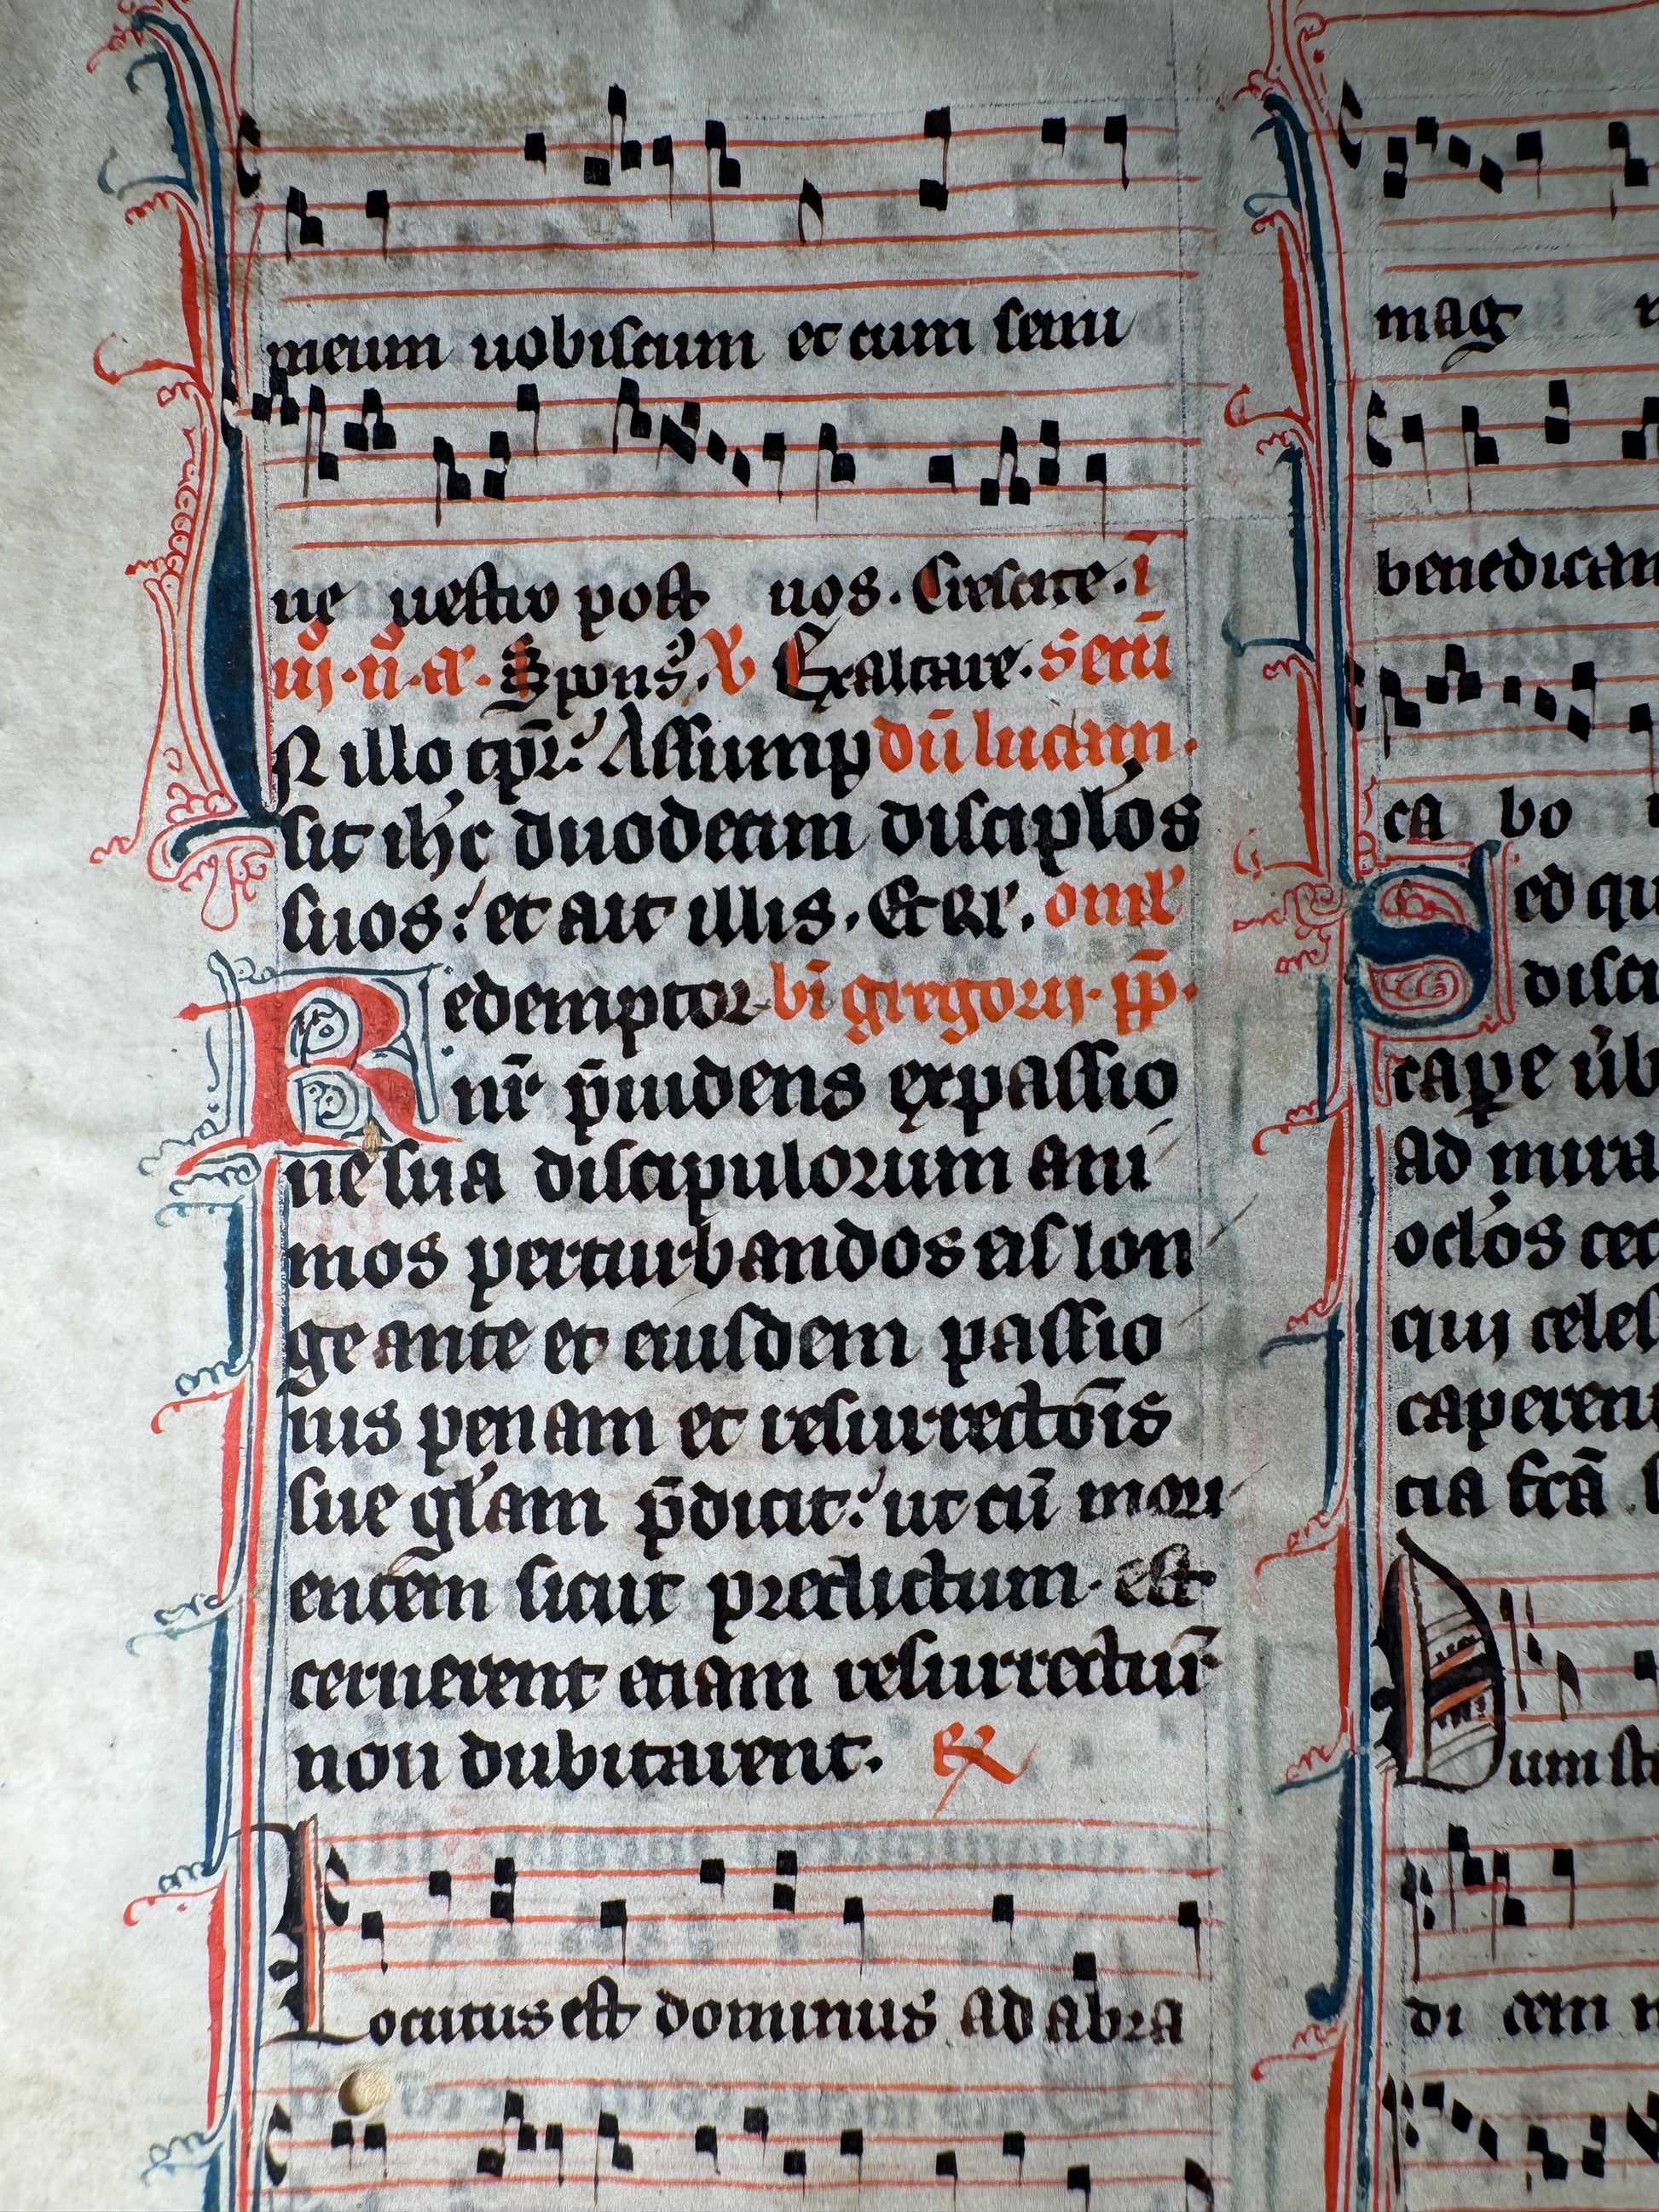 meum uobiscum et cum semi
ne uestro post uos. Crescite. ī
iij. n̄. a. Spons9. V Exaltare. Scđm
N illo tpr̄. Assump dū lucam.
sit ih̄c duodecim discipl'os
suos: et ait illis. Et Rl'. Omel'
Redemptor bī gregorij. pp̄.
nr̄ p̄uidens ex passio
ne sua discipulorum ani
mos perturbandos eis lon
ge ante et eiusdem passio
nis penam et resurrectōis
sue gl'am p̄dicit: ut cū mori
entem sicut predictum est
cernerent etiam resurrecturū
non dubitarent. R
Locutus est dominus ad abra
mag
benedicam
ca bo
Sed qu
disci
cape u'b
ad mira
oclos cec
qui celes
caperent
tia fcā
Dum sta
di cem